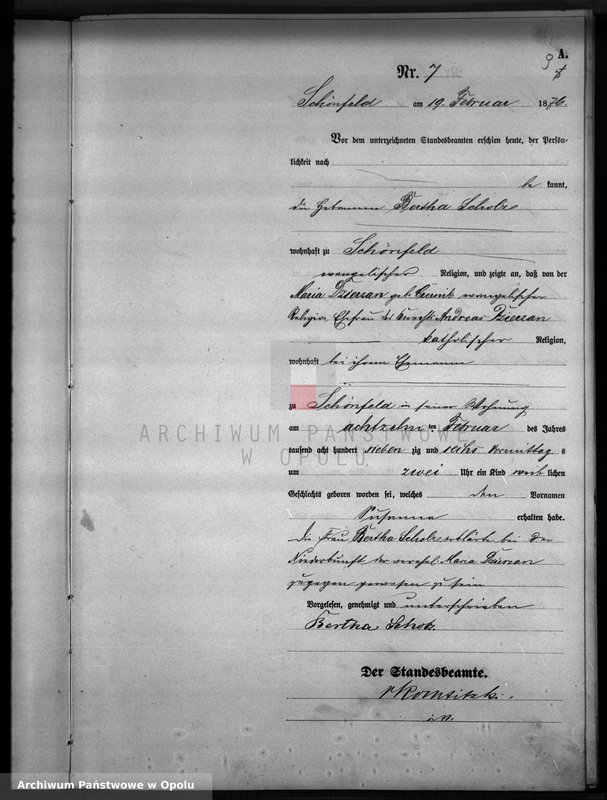 A.
9
8
Nr. 7
Schönfeld am 19. Februar 1876
Vor dem unterzeichneten Standesbeamten erschien heute, der Persön-
lichkeit nach
be kannt,
die Hebamme Bertha Scholz
wohnhaft zu Schönfeld
evangelischer Religion, und zeigte an, daß von der
Maria Dzierzan geb. evangelischer
Religion Ehefrau des Knecht Andreas Dzierzan
katholischer Religion,
wohnhaft bei ihrem Ehemann
zu Schönfeld in seiner Wohnung
am achtzehn ten Februar des Jahres
tausend acht hundert sieben zig und sechs Vormittag s
um zwei Uhr ein Kind weib lichen
Geschlechts geboren worden sei, welches den Vornamen
Susanna erhalten habe.
Die Frau Bertha Scholz erklärte bei der
Niederkunft der verehel. Maria Dzierzan
zugegen gewesen zu sein
Vorgelesen, genehmigt und unterschrieben
Bertha Scholz.
Der Standesbeamte.
i.V.
ARCHIWUM PAŃSTWOWE
W OPOLU
Archiwum Państwowe w Opolu